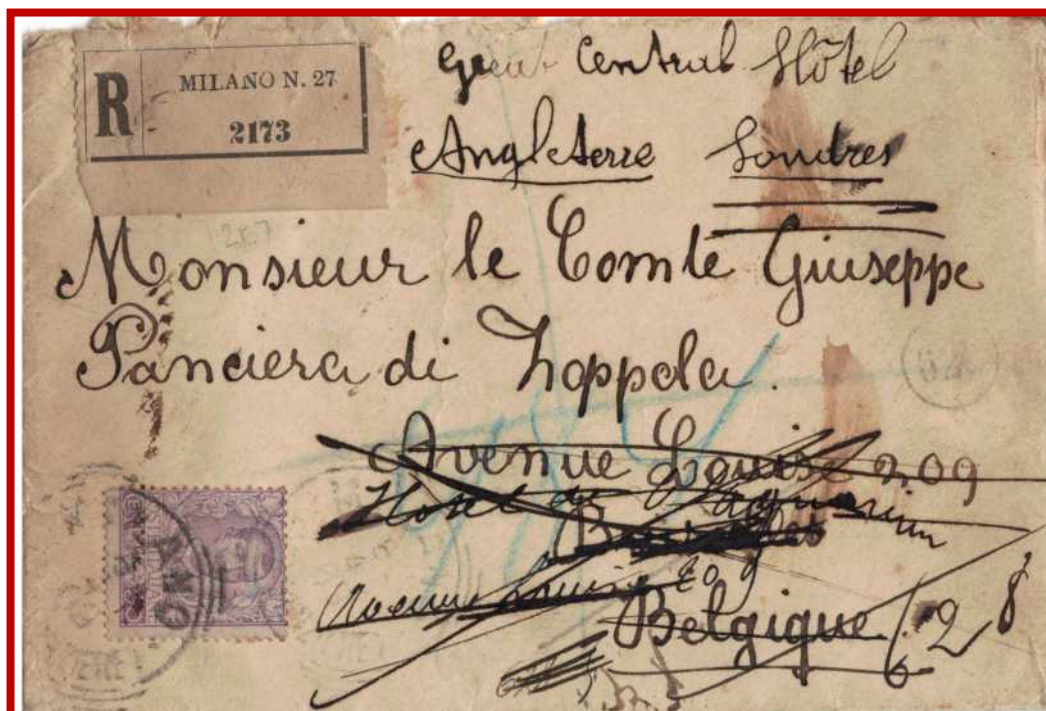 R
MILANO N. 27
2173
Great Central Hôtel
Angleterre Londres
Monsieur le Comte Giuseppe
Panciera di Zoppola.
Avenue Louise 209
Hotel de
Bruxelles
Avenue Louise 209
Belgique
ANO